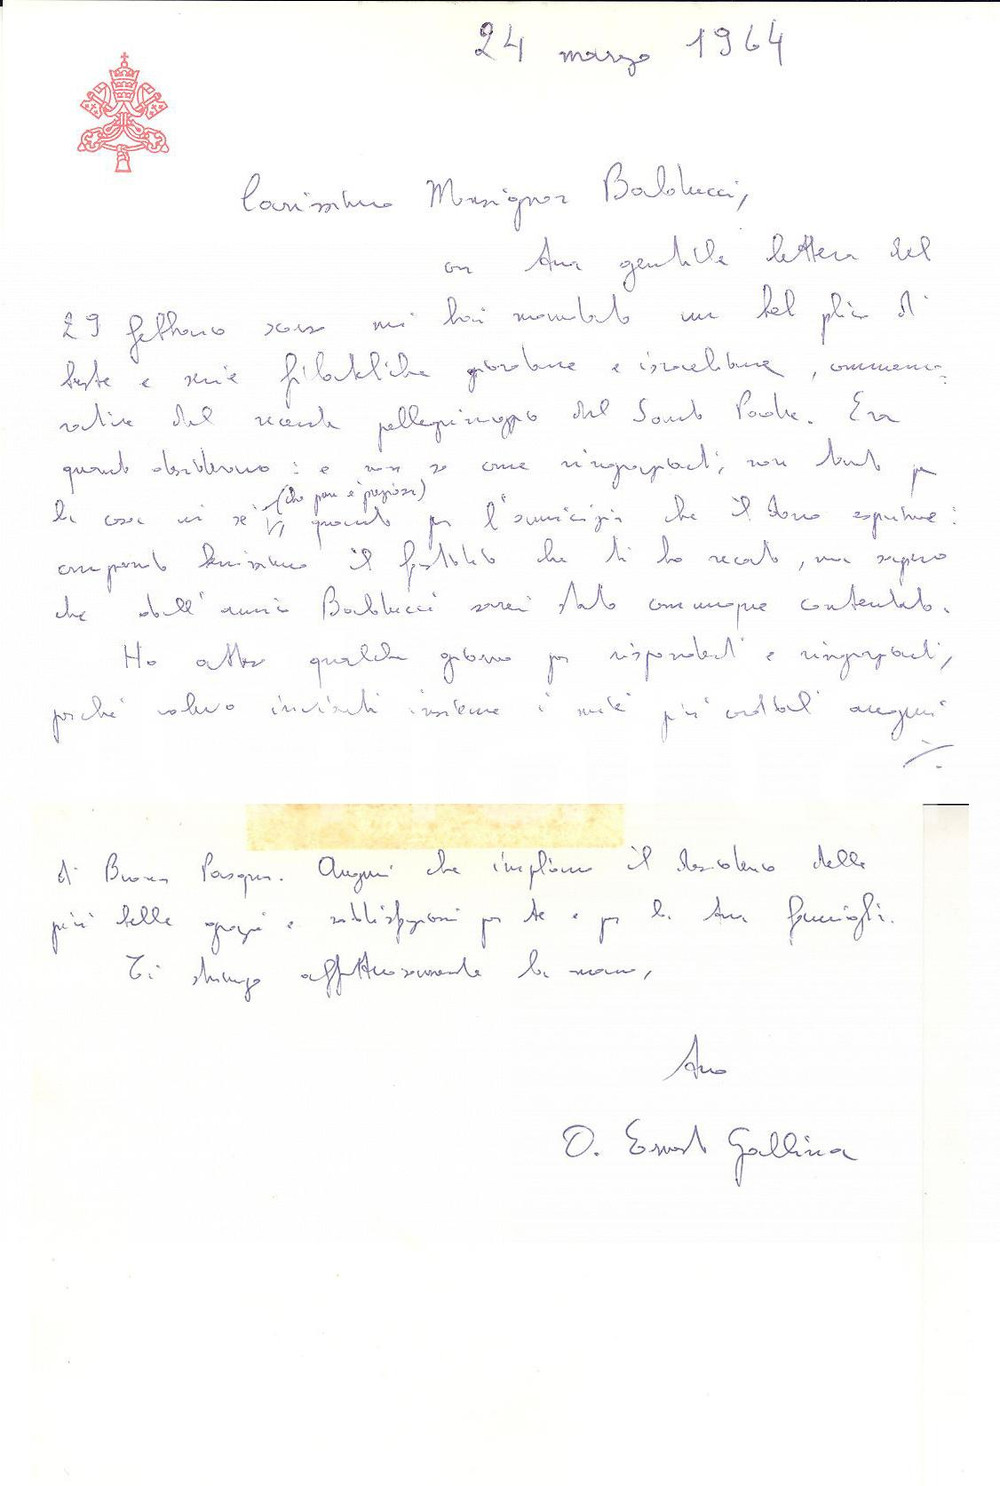 24 marzo 1964
Carissimo Monsignor Balducci,
con tua gentile lettera del
29 febbraio scorso mi hai mandato un bel plico di
buste e serie filateliche giordane e israeliane, commemo-
rative del recente pellegrinaggio del Santo Padre. Era
quanto desideravo: e non so come ringraziarti, non tanto per
la cosa in sé (che pure è preziosa) quanto per l'amicizia che il dono esprime:
comprendo benissimo il fastidio che ti ho recato, ma sapevo
che dall'amico Balducci sarei stato comunque contentato.
Ho atteso qualche giorno per risponderti e ringraziarti,
perché volevo inviarti insieme i miei più cordiali auguri
./.
di Buona Pasqua. Auguri che implicano il desiderio delle
più belle grazie e soddisfazioni per te e per la tua famiglia.
Ti stringo affettuosamente la mano,
tuo
D. Ernesto Gallina